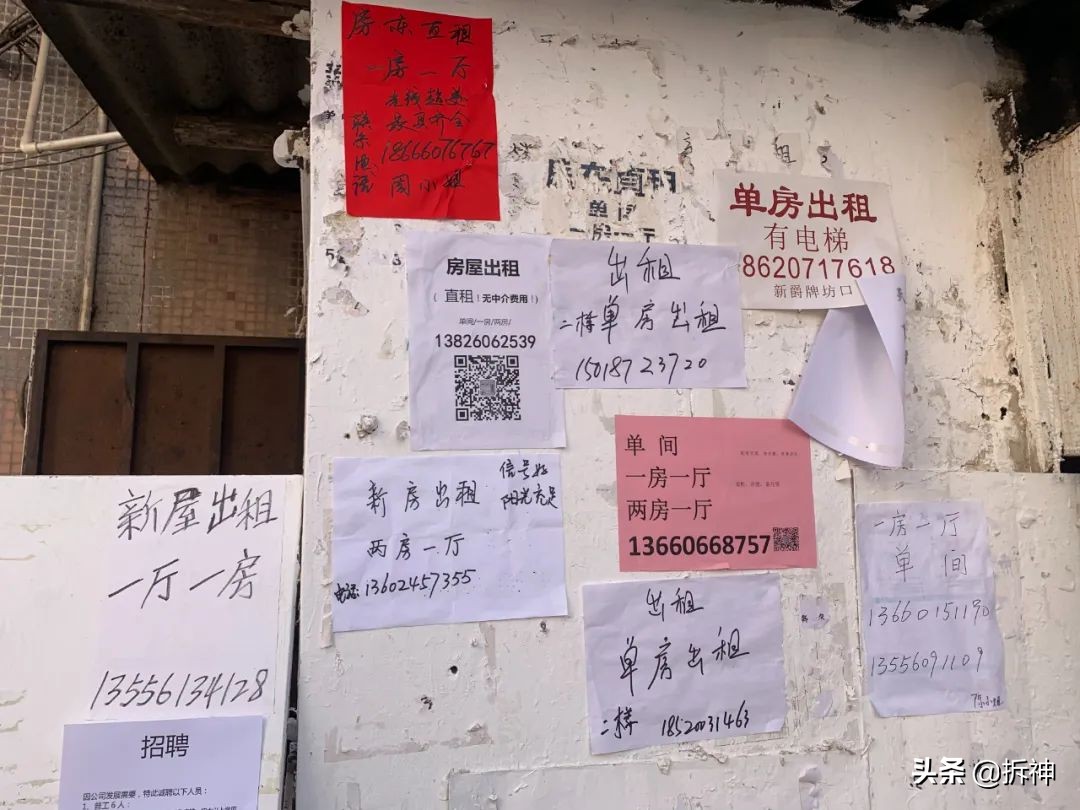 房东直租
一房一厅
光线超美
家具齐全
联系电话
18666076767
周小姐
房东直租
单间
一房一厅
单房出租
有电梯
8620717618
新爵牌坊口
房屋出租
(直租!无中介费用!)
单间/一房/两房/
13826062539
出租
二楼单房出租
15018723720
单间
一房一厅
两房一厅
13660668757
新房出租
信号好
阳光充足
两房一厅
电话:13602457355
新屋出租
一厅一房
13556134128
出租
单房出租
二楼 18520031463
一房一厅
单间
13660151190
13556091109
招聘
因公司发展需要,特此诚聘以下人员:
1、普工6人:
头条 @拆神